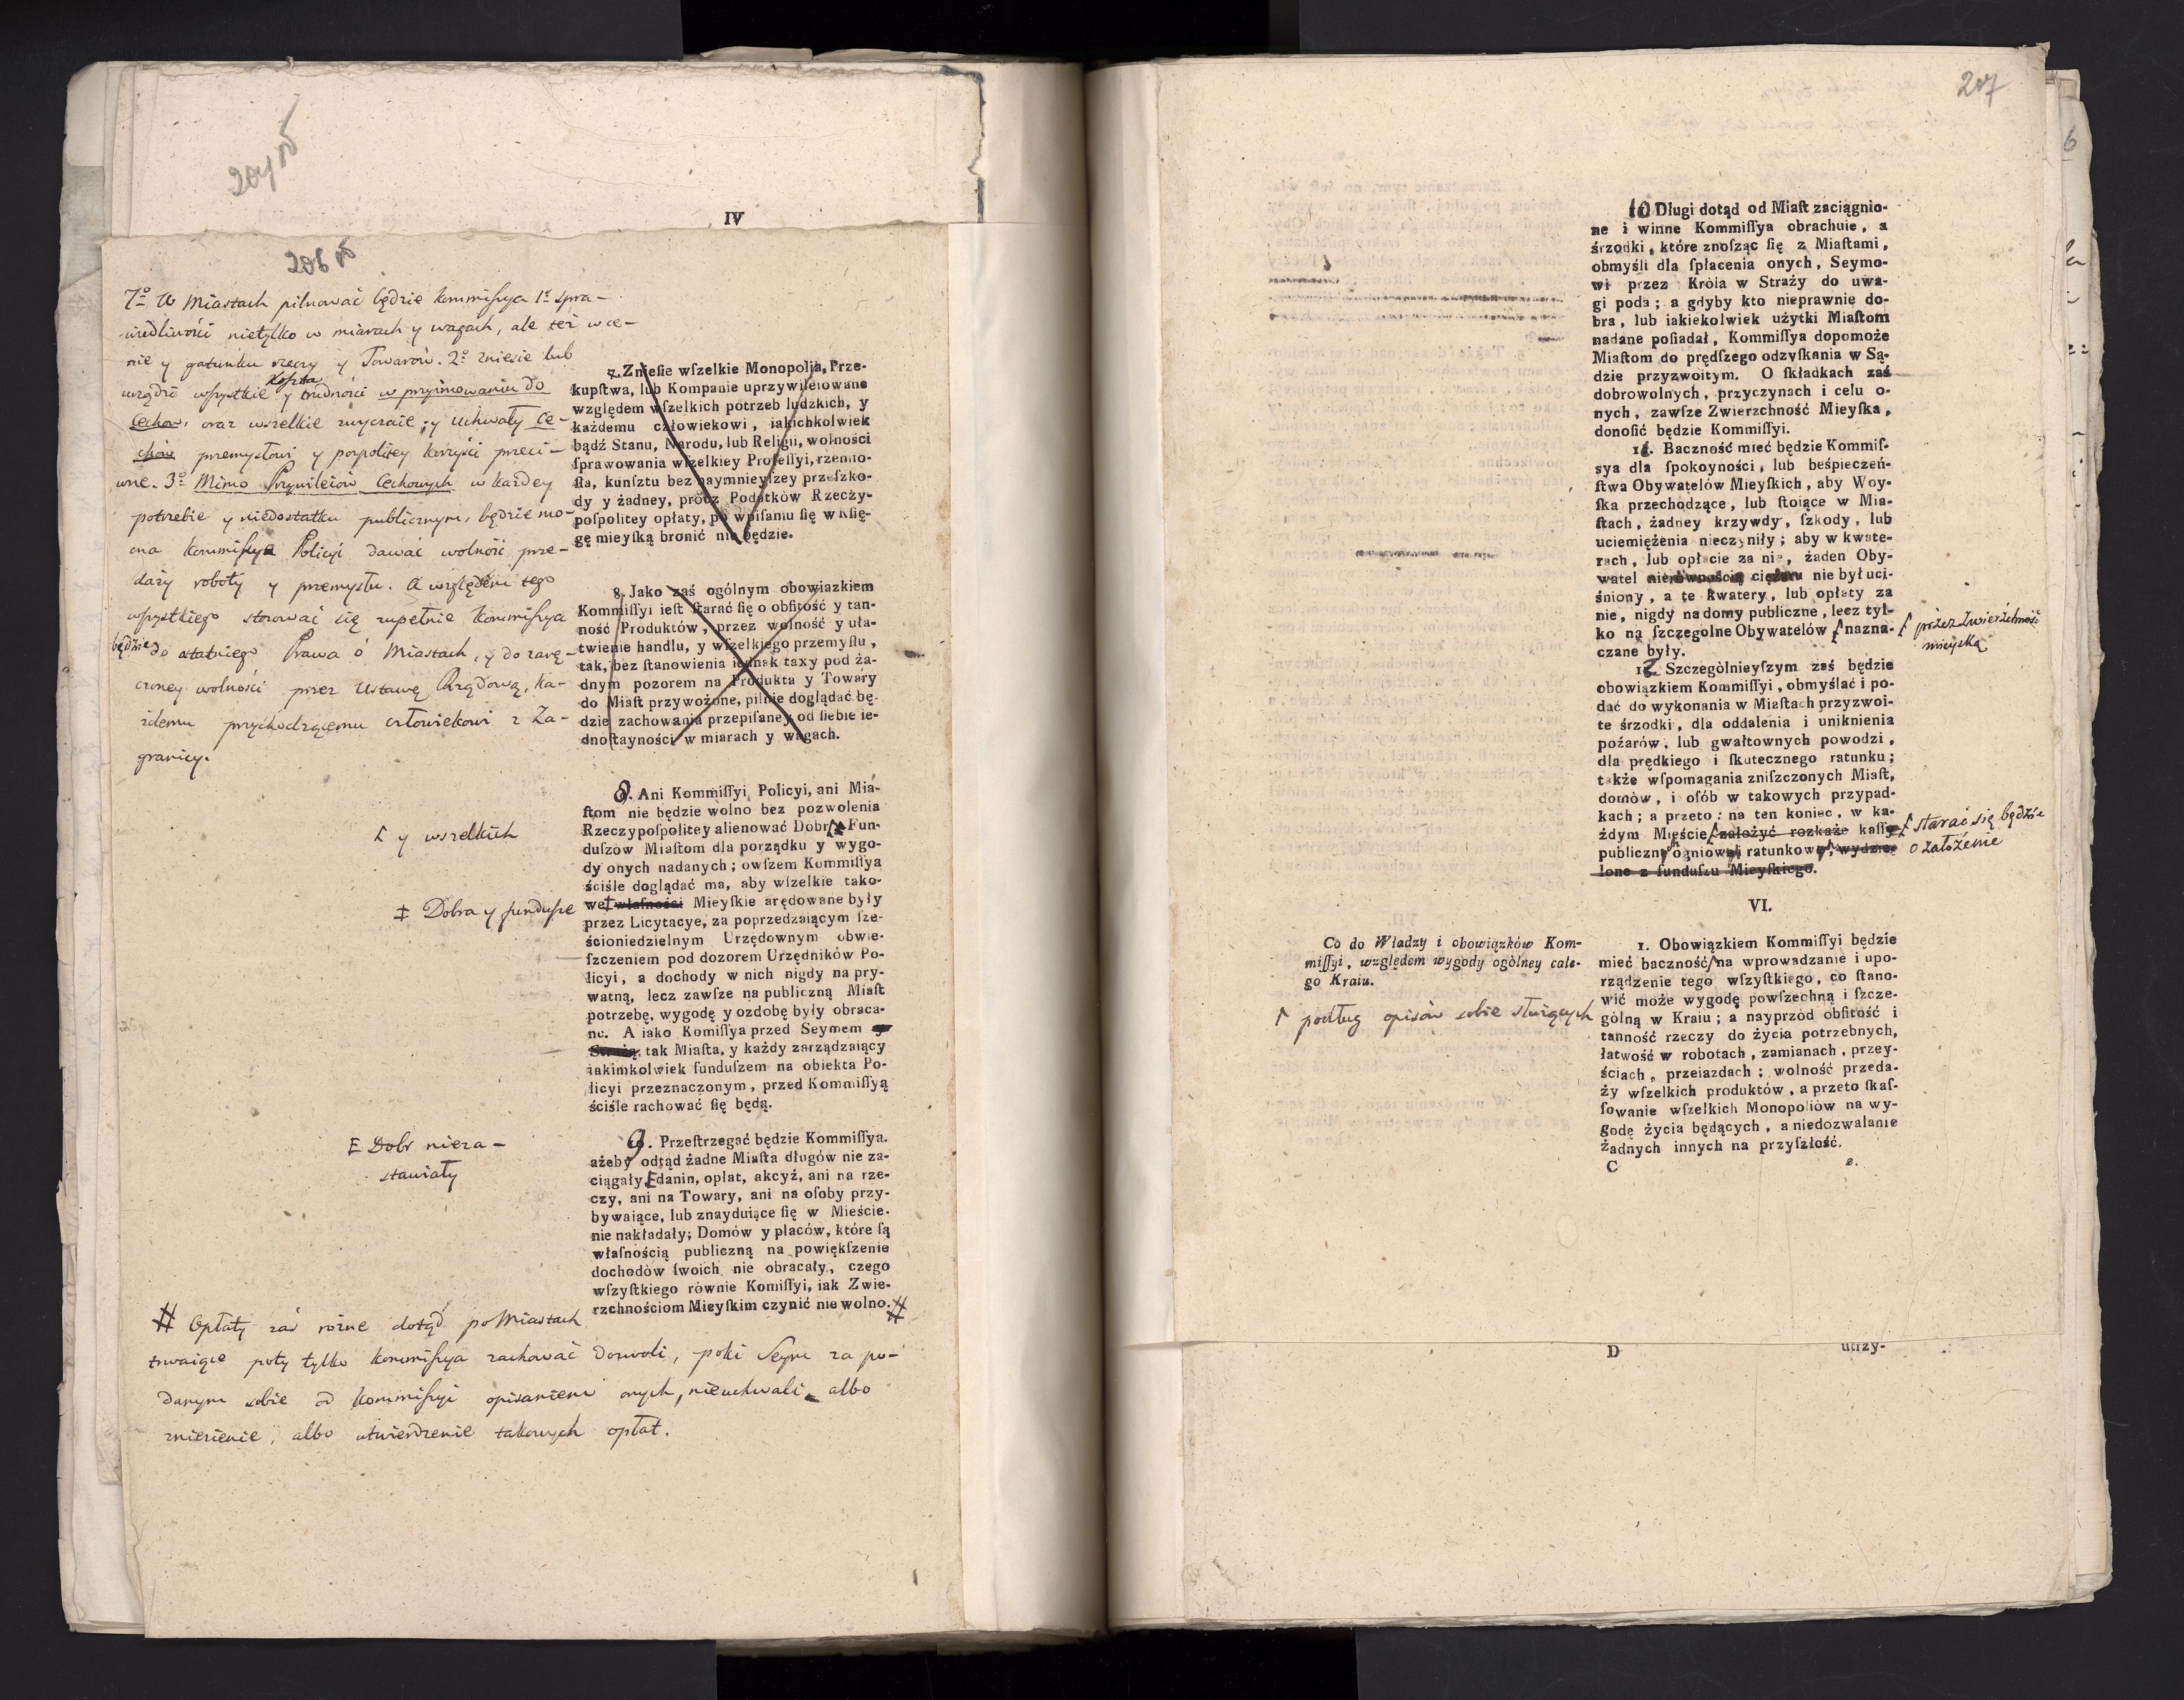 204v
IV
206v
7º W Miastach pilnować będzie Kommissya 1º spra-
wiedliwości nietylko w miarach y wagach, ale też w ce-
nie y gatunku rzeczy y Towarów. 2º zniesie lub
urządzi wszystkie koszta y trudności w przyimowaniu do
Cechow, oraz wszelkie zwyczaie y uchwały Ce-
chów przemysłowi y pospolitey korzyści przeci-
wne. 3º Mimo Przywileiów Cechowych w każdey
potrzebie y niedostatku publicznym, będzie mo-
cna Kommissya Policyi dawać wolność prze-
daży roboty y przemysłu. A względem tego
wszystkiego stosować się zupełnie Kommissya
będzie do ostatniego Prawa o Miastach, y do zarę-
czoney wolności przez Ustawę Rządową, ka-
żdemu przychodzącemu człowiekowi z Za-
granicy.
7. Znieſie wſzelkie Monopolja, Prze-
kupſtwa, lub Kompanie uprzywileiowane
względem wſzelkich potrzeb ludzkich, y
każdemu człowiekowi, iakichkolwiek
bądź Stanu, Narodu, lub Religii, wolności
ſprawowania wſzelkiey Profeſſyi, rzemio-
ſła, kunſztu bez naymnieyſzey przeſzko-
dy y żadney, prócz Podatków Rzeczy-
poſpolitey opłaty, po wpiſaniu ſię w Kſię-
gę mieyſką bronić nie będzie.
8. Jako zaś ogólnym obowiazkiem
Kommiſſyi ieſt ſtarać ſię o obfitość y tan-
ność Produktów, przez wolność y uła-
twienie handlu, y wſzelkiego przemyſłu,
tak, bez ſtanowienia iednak taxy pod ża-
dnym pozorem na Produkta y Towary
do Miaſt przywożone, pilnie doglądać bę-
dzie zachowania przepiſaney od ſiebie ie-
dnoſtayności w miarach y wagach.
8. Ani Kommiſſyi Policyi, ani Mia-
ſtom nie będzie wolno bez pozwolenia
Rzeczypoſpolitey alienować Dobr y Fun-
duſzów Miaſtom dla porządku y wygo-
dy onych nadanych; owſzem Kommiſſya
ściśle doglądać ma, aby wſzelkie tako-
we własności Mieyſkie arędowane były
przez Licytacye, za poprzedzaiącym ſze-
ścioniedzielnym Urzędownym obwie-
ſzczeniem pod dozorem Urzędników Po-
licyi, a dochody w nich nigdy na pry-
watną, lecz zawſze na publiczną Miaſt
potrzebę, wygodę y ozdobę były obraca-
ne. A iako Komiſſya przed Seymem y
Strażą, tak Miaſta, y każdy zarządzaiący
iakimkolwiek funduſzem na obiekta Po-
licyi przeznaczonym, przed Kommiſſyą
ściśle rachować ſię będą.
y wszelkich
‡ Dobra y fundusze
9. Przeſtrzegać będzie Kommiſſya.
ażeby odtąd żadne Miaſta długów nie za-
ciągały, danin, opłat, akcyż, ani na rze-
czy, ani na Towary, ani na oſoby przy-
bywaiące, lub znayduiące ſię w Mieście.
nie nakładały; Domów y placów, które ſą
właſnością publiczną na powiękſzenie
dochodów ſwoich nie obracały, czego
wſzyſtkiego równie Komiſſyi, iak Zwie-
rzchnościom Mieyſkim czynić nie wolno. #
E Dobr nieza-
stawiały
# Opłaty zaś rożne dotąd po Miastach
trwaiące poty tylko Kommissya zachować dozwoli, poki Seym za po-
danym sobie od Kommissyi opisaniem onych, nieuchwali albo
zniesienie, albo utwierdzenie takowych opłat.
207
10 Długi dotąd od Miaſt zaciągnio-
ne i winne Kommiſſya obrachuie, a
śrzodki, które znoſząc ſię z Miaſtami,
obmyśli dla ſpłacenia onych, Seymo-
wi przez Króla w Straży do uwa-
gi poda; a gdyby kto nieprawnie do-
bra, lub iakiekolwiek użytki Miaſtom
nadane poſiadał, Kommiſſya dopomoże
Miaſtom do prędſzego odzyſkania w Są-
dzie przyzwoitym. O ſkładkach zaś
dobrowolnych, przyczynach i celu o-
nych, zawſze Zwierzchność Mieyſka,
donoſić będzie Kommiſſyi.
11. Baczność mieć będzie Kommiſ-
sya dla ſpokoyności, lub beśpieczeń-
ſtwa Obywatelów Mieyſkich, aby Woy-
ſka przechodzące, lub ſtoiące w Mia-
ſtach, żadney krzywdy, ſzkody, lub
uciemiężenia nieczyniły; aby w kwate-
rach, lub opłacie za nie, żaden Oby-
watel nierównością ciężaru nie był uci-
śniony, a te kwatery, lub opłaty za
nie, nigdy na domy publiczne, lecz tyl-
ko na ſzczegolne Obywatelów nazna-
czane były.
przez Zwierzchność
mieyską
12 Szczególnieyſzym zaś będzie
obowiązkiem Kommiſſyi, obmyślać i po-
dać do wykonania w Miaſtach przyzwoi-
te śrzodki, dla oddalenia i uniknienia
pożarów, lub gwałtownych powodzi,
dla prędkiego i ſkutecznego ratunku;
także wſpomagania zniſzczonych Miaſt,
domów, i oſób w takowych przypad-
kach; a przeto: na ten koniec, w ka-
żdym Mieście założyć rozkaże kaſſy
publiczne ogniowe ratunkowe, wydzie-
lone z funduſzu Mieyſkiego.
starać się będzie
o założenie
VI.
Co do Władzy i obowiązków Kom-
miſſyi, względem wygody ogólney całe-
go Kraiu.
podług opisów sobie służących
1. Obowiązkiem Kommiſſyi będzie
mieć baczność na wprowadzanie i upo-
rządzenie tego wſzyſtkiego, co ſtano-
wić może wygodę powſzechną i ſzcze-
gólną w Kraiu; a nayprzód obfitość i
tanność rzeczy do życia potrzebnych,
łatwość w robotach, zamianach, przey-
ściach, przeiazdach; wolność przeda-
ży wſzelkich produktów, a przeto ſkaſ-
ſowanie wſzelkich Monopoliów na wy-
godę życia będących, a niedozwalanie
żadnych innych na przyſzłość.
C 2.
D utrzy-